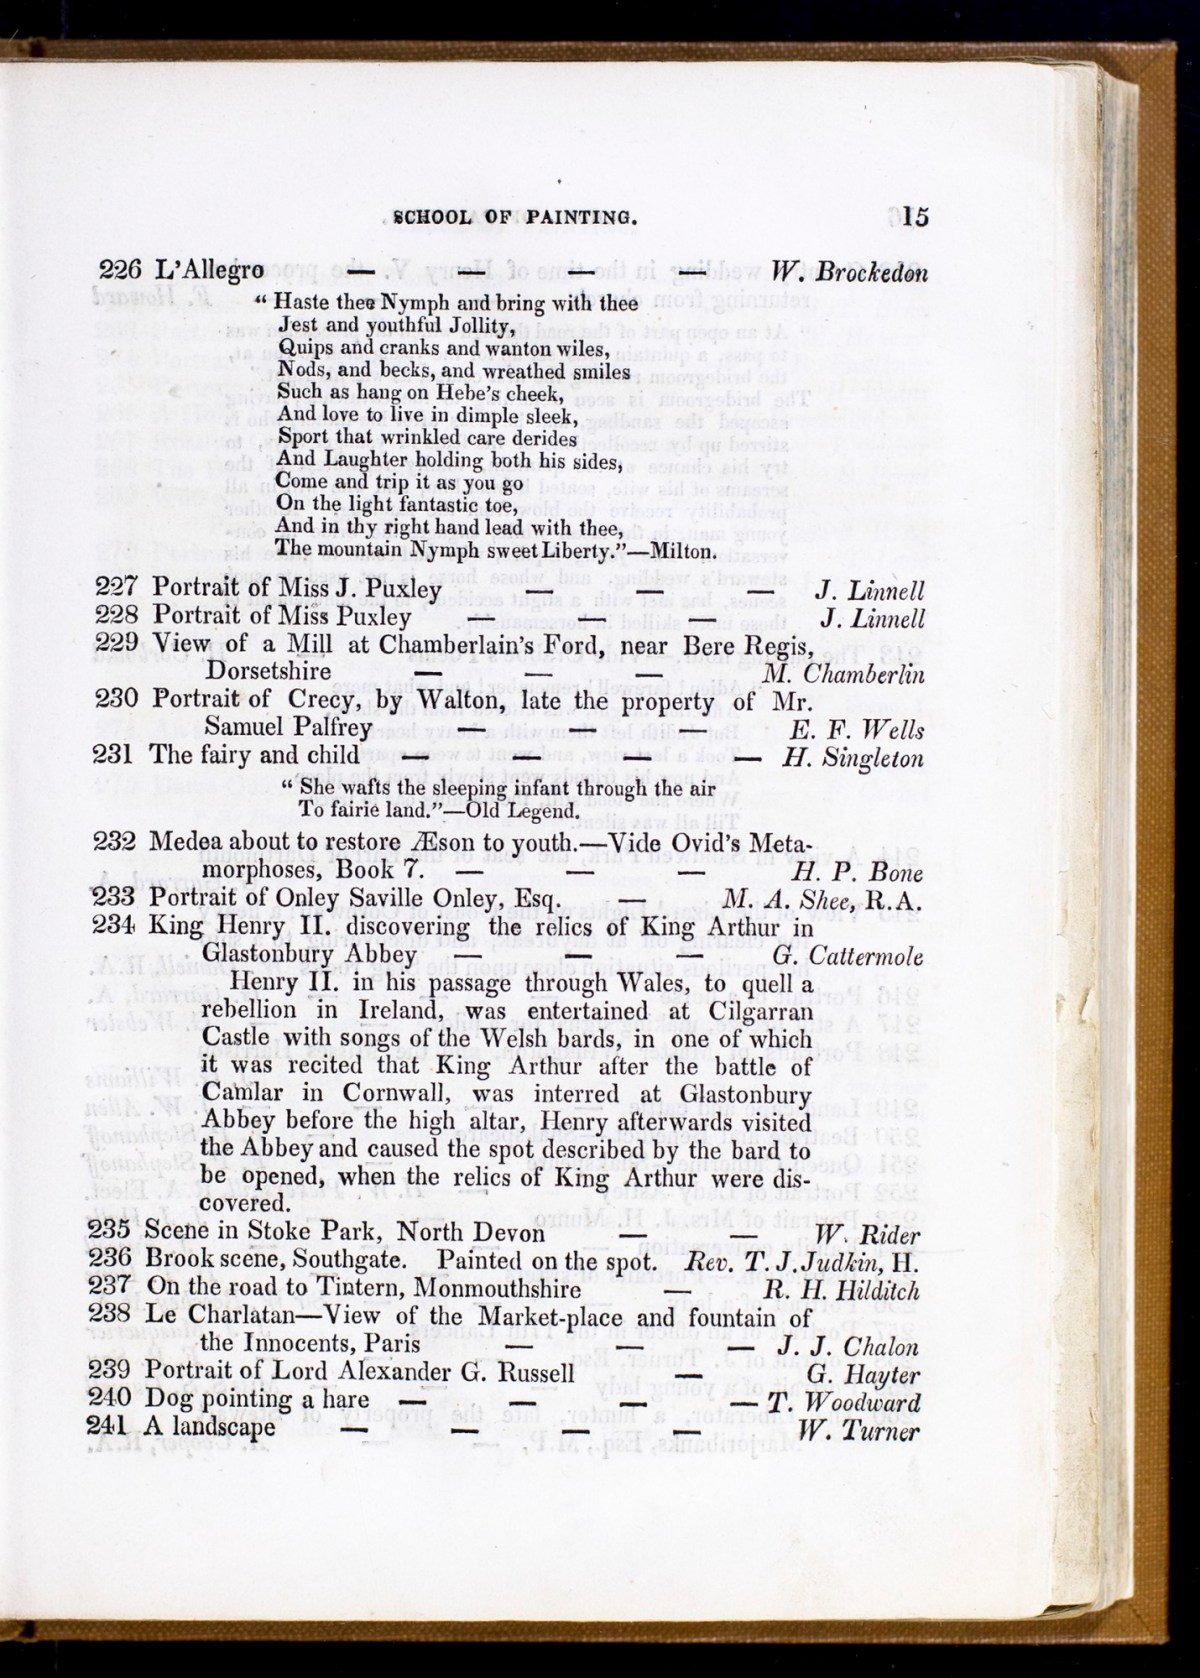 SCHOOL OF PAINTING. 15
226 L'Allegro — — — — W. Brockedon
“ Haste thee Nymph and bring with thee
Jest and youthful Jollity,
Quips and cranks and wanton wiles,
Nods, and becks, and wreathed smiles
Such as hang on Hebe's cheek,
And love to live in dimple sleek,
Sport that wrinkled care derides
And Laughter holding both his sides,
Come and trip it as you go
On the light fantastic toe,
And in thy right hand lead with thee,
The mountain Nymph sweet Liberty.”—Milton.
227 Portrait of Miss J. Puxley — — — J. Linnell
228 Portrait of Miss Puxley — — — J. Linnell
229 View of a Mill at Chamberlain's Ford, near Bere Regis,
Dorsetshire — — — M. Chamberlin
230 Portrait of Crecy, by Walton, late the property of Mr.
Samuel Palfrey — — — E. F. Wells
231 The fairy and child — — — — H. Singleton
“ She wafts the sleeping infant through the air
To fairie land.”—Old Legend.
232 Medea about to restore Æson to youth.—Vide Ovid's Meta-
morphoses, Book 7. — — — H. P. Bone
233 Portrait of Onley Saville Onley, Esq. — M. A. Shee, R.A.
234 King Henry II. discovering the relics of King Arthur in
Glastonbury Abbey — — — G. Cattermole
Henry II. in his passage through Wales, to quell a
rebellion in Ireland, was entertained at Cilgarran
Castle with songs of the Welsh bards, in one of which
it was recited that King Arthur after the battle of
Camlar in Cornwall, was interred at Glastonbury
Abbey before the high altar, Henry afterwards visited
the Abbey and caused the spot described by the bard to
be opened, when the relics of King Arthur were dis-
covered.
235 Scene in Stoke Park, North Devon — — W. Rider
236 Brook scene, Southgate. Painted on the spot. Rev. T. J. Judkin, H.
237 On the road to Tintern, Monmouthshire — R. H. Hilditch
238 Le Charlatan—View of the Market-place and fountain of
the Innocents, Paris — — — J. J. Chalon
239 Portrait of Lord Alexander G. Russell — G. Hayter
240 Dog pointing a hare — — — — T. Woodward
241 A landscape — — — — W. Turner